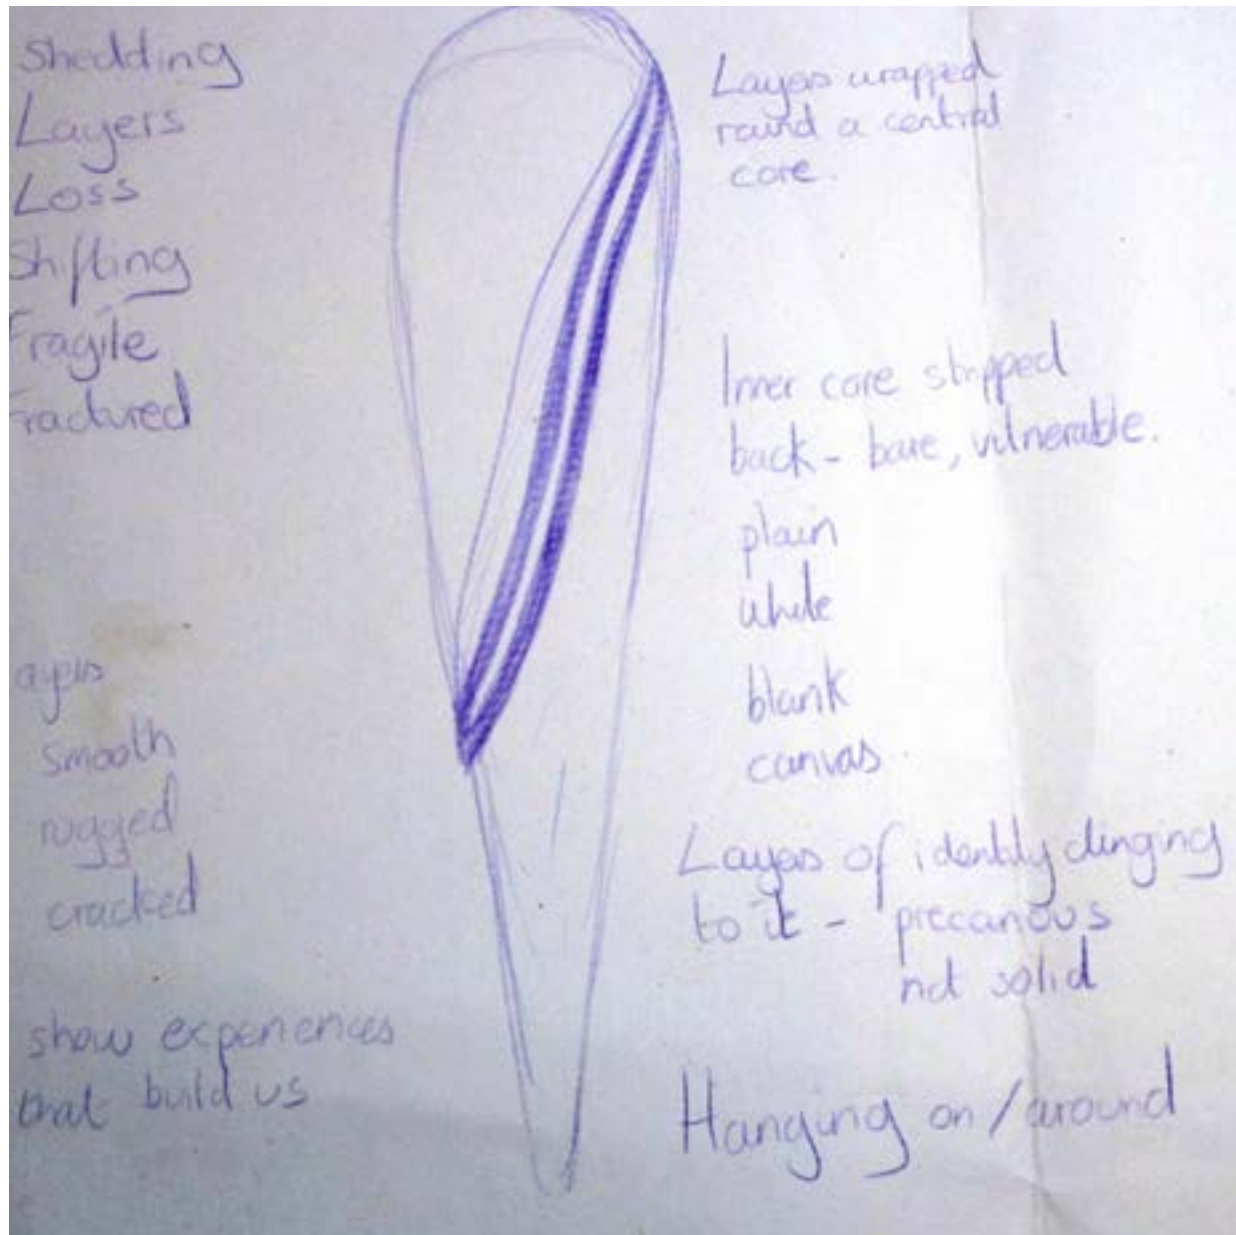 Shedding
Layers
Loss
Shifting
Fragile
Fractured
ayers
smooth
rugged
cracked
show experiences
that build us
Layers wrapped
round a central
core.
Inner core stripped
back - bare, vulnerable.
plain
white
blank
canvas.
Layers of identity clinging
to it - precarious
not solid
Hanging on / around